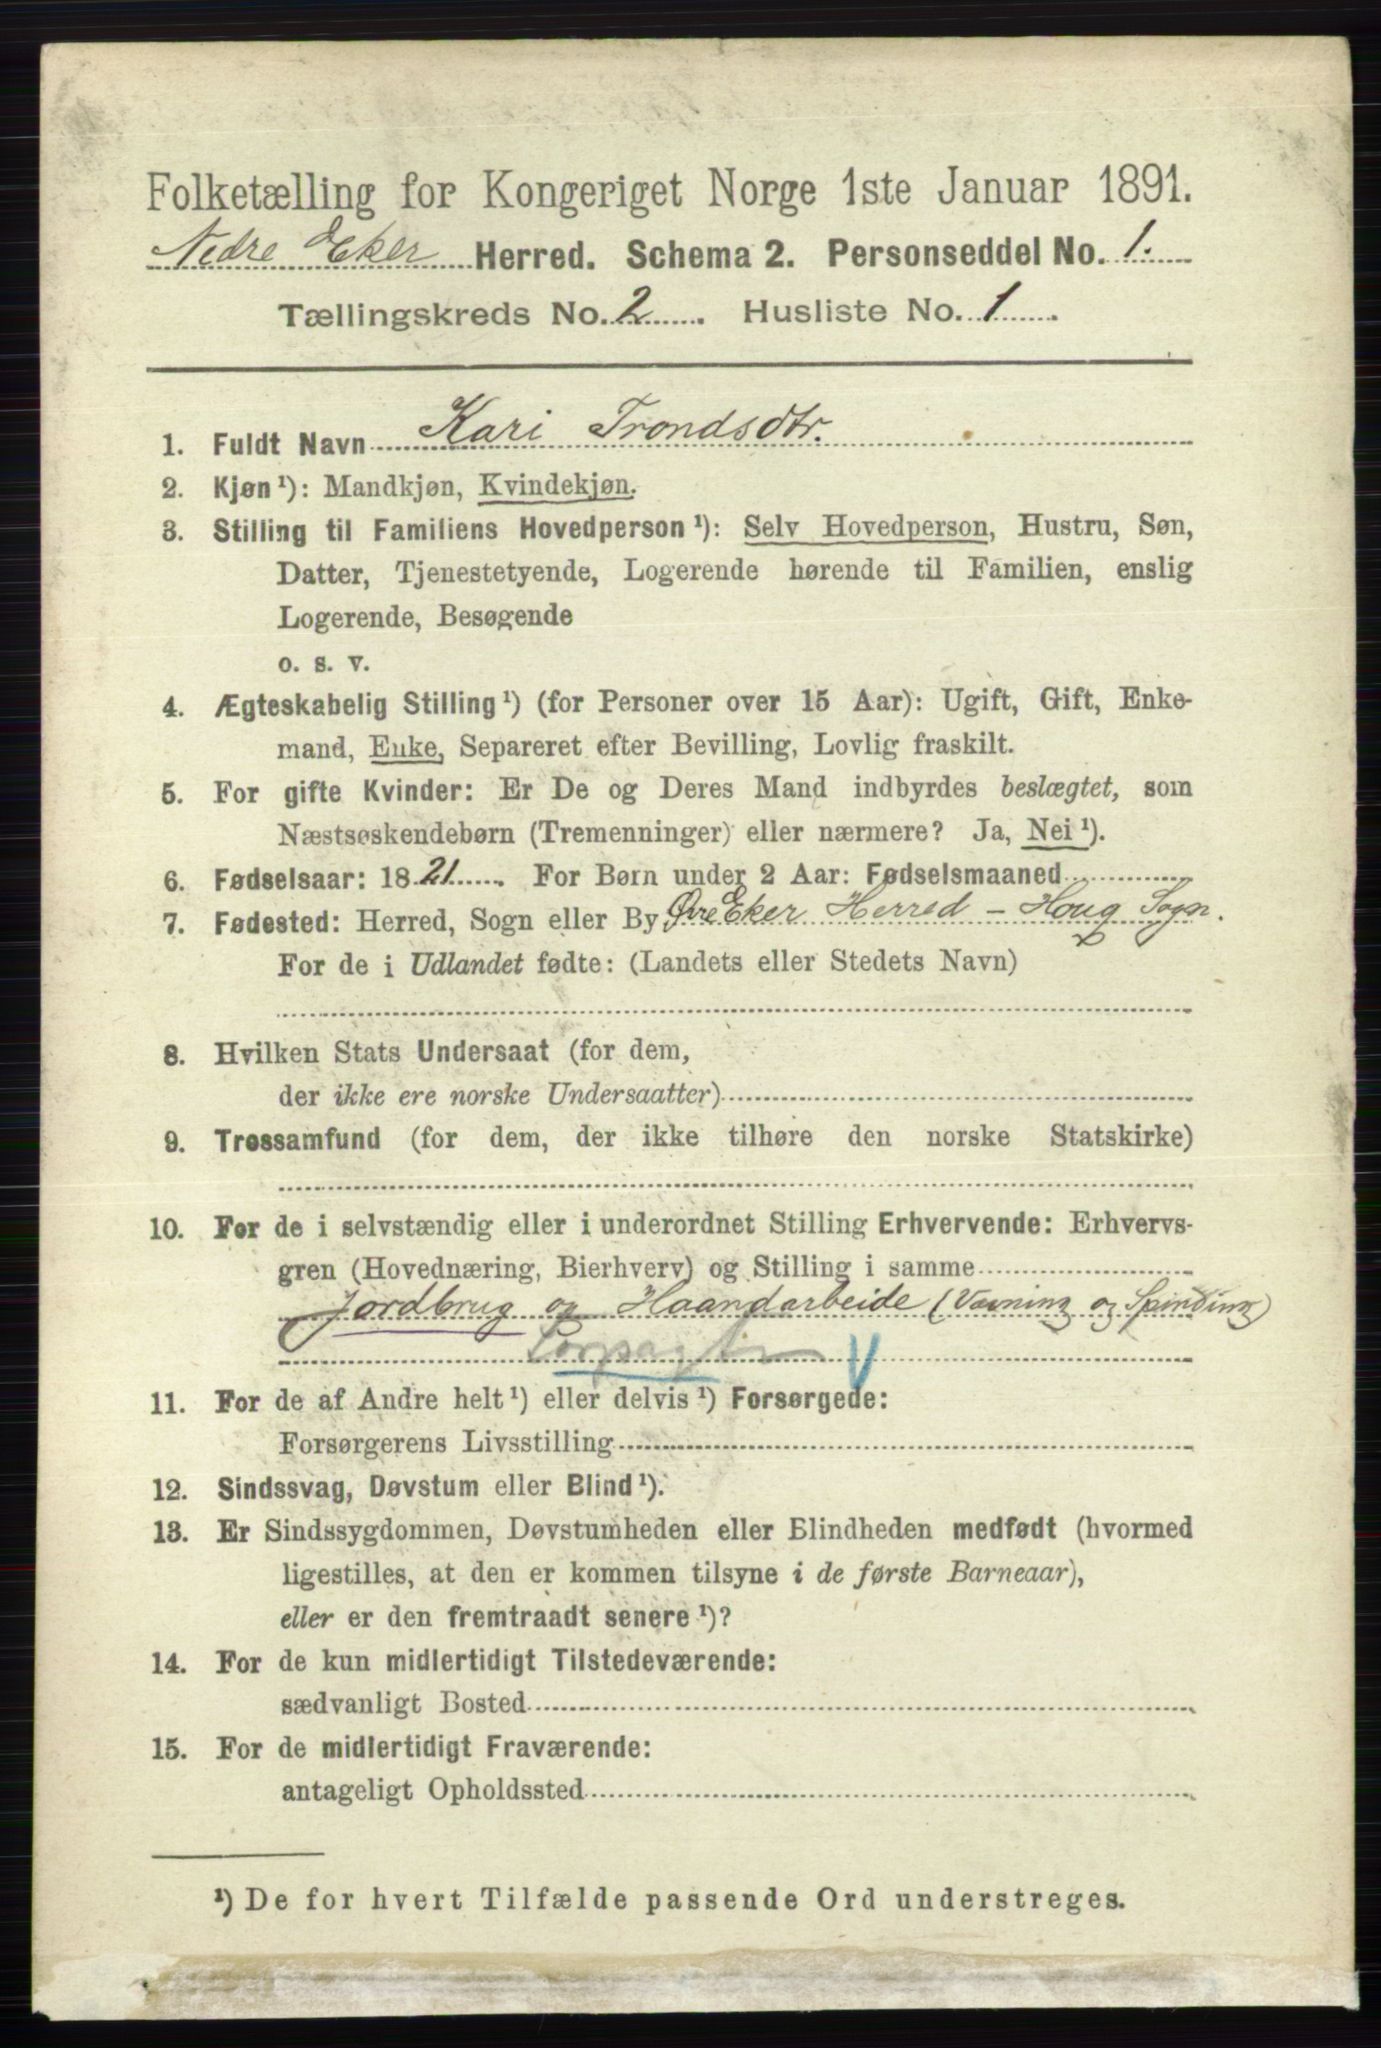 Folketælling for Kongeriget Norge 1ste Januar 1891.
Nedre Eker Herred. Schema 2. Personseddel No. 1.
Tællingskreds No. 2. Husliste No. 1.
1. Fuldt Navn Kari Trondsdtr.
2. Kjøn¹): Mandkjøn, Kvindekjøn.
3. Stilling til Familiens Hovedperson¹): Selv Hovedperson, Hustru, Søn,
Datter, Tjenestetyende, Logerende hørende til Familien, enslig
Logerende, Besøgende
o. s. v.
4. Ægteskabelig Stilling¹) (for Personer over 15 Aar): Ugift, Gift, Enke-
mand, Enke, Separeret efter Bevilling, Lovlig fraskilt.
5. For gifte Kvinder: Er De og Deres Mand indbyrdes beslægtet, som
Næstsøskendebørn (Tremenninger) eller nærmere? Ja, Nei¹).
6. Fødselsaar: 1821. For Børn under 2 Aar: Fødselsmaaned
7. Fødested: Herred, Sogn eller By Øvre Eker Herred - Houg Sogn.
For de i Udlandet fødte: (Landets eller Stedets Navn)
8. Hvilken Stats Undersaat (for dem,
der ikke ere norske Undersaatter)
9. Trossamfund (for dem, der ikke tilhøre den norske Statskirke)
10. For de i selvstændig eller i underordnet Stilling Erhvervende: Erhvervs-
gren (Hovednæring, Bierhverv) og Stilling i samme
Jordbrug og Haandarbeide (Vævning og Spinding)
11. For de af Andre helt¹) eller delvis¹) Forsørgede:
Forsørgerens Livsstilling
12. Sindssvag, Døvstum eller Blind¹).
13. Er Sindssygdommen, Døvstumheden eller Blindheden medfødt (hvormed
ligestilles, at den er kommen tilsyne i de første Barneaar),
eller er den fremtraadt senere¹)?
14. For de kun midlertidigt Tilstedeværende:
sædvanligt Bosted
15. For de midlertidigt Fraværende:
antageligt Opholdssted
¹) De for hvert Tilfælde passende Ord understreges.